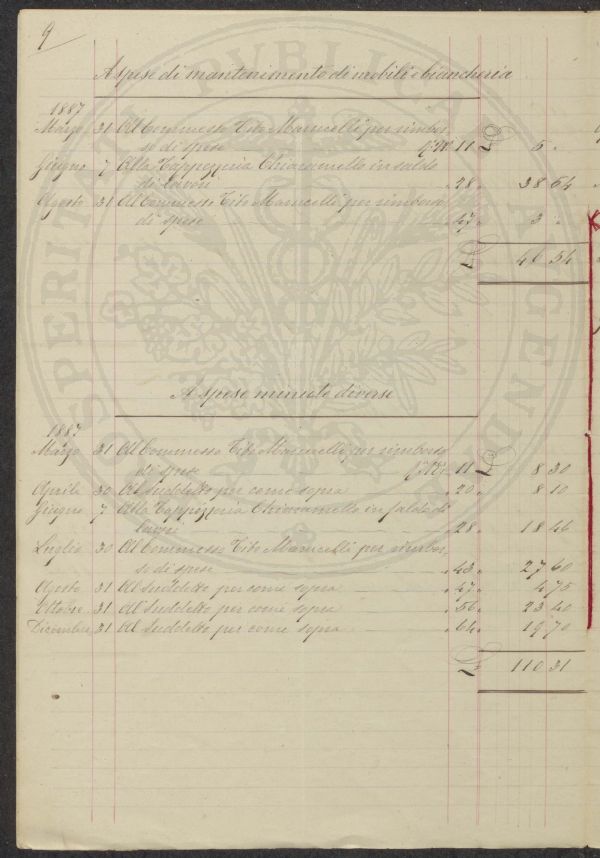 9
A spese di mantenimento di mobili e biancheria
1887
Marzo 31 Al Commesso Tito Marucelli per rimbor-
so di spese 11 £ 5 "
Giugno 7 Alla Tappezzeria Chiaramello in saldo
di lavori " 28 " 38 54
Agosto 31 Al Commesso Tito Marucelli per rimborso
di spese " 47 " 3 "
£ 46 54
A spese minute diverse
1887
Marzo 31 Al Commesso Tito Marucelli per rimborso
di spese 11 £ 8 30
Aprile 30 Al suddetto per come sopra " 20 " 8 10
Giugno 7 Alla Tappezzeria Chiaramello in saldo di
lavori " 28 " 18 46
Luglio 30 Al Commesso Tito Marucelli per rimbor-
so di spese " 43 " 27 60
Agosto 31 Al suddetto per come sopra " 47 " 4 75
Ottobre 31 Al suddetto per come sopra " 56 " 23 40
Dicembre 31 Al suddetto per come sopra " 64 " 19 70
£ 110 31
OSPERITATI PVBLICAE GENDA